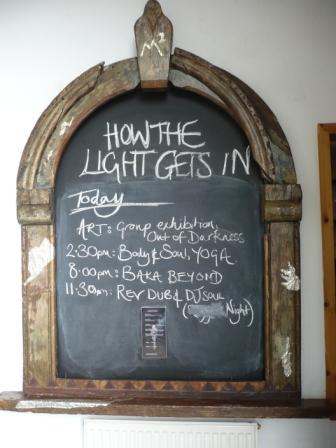 M²
HOW THE
LIGHT GETS IN
Today
ART: Group exhibition,
Out of Darkness
2:30pm: Body & Soul, YOGA
8:00pm: BAKA BEYOND
11:30pm: REV DUB & DJ SOUL
( Night)